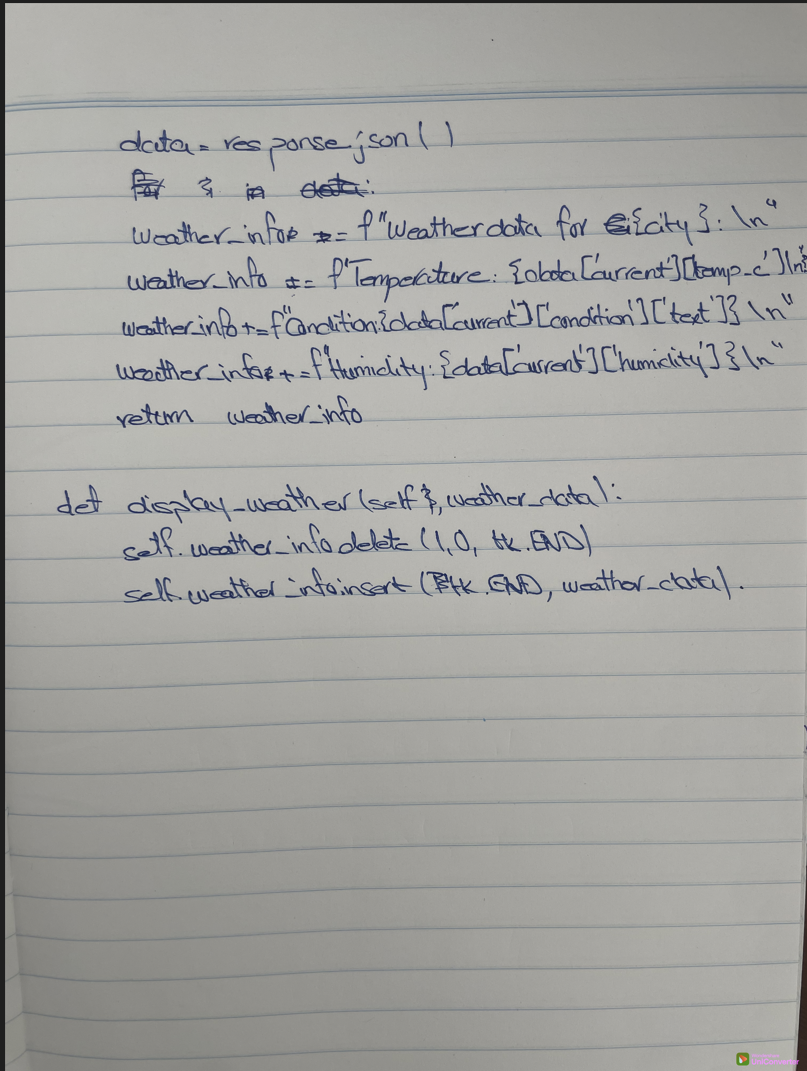 data = response.json()
weather_info = f"Weather data for {city}: \n"
weather_info += f"Temperature: {data['current']['temp_c']\n}
weather_info += f"Condition:{data['current']['condition']['text']} \n"
weather_info += f"Humidity: {data['current']['humidity']}\n"
return weather_info
def display_weather(self, weather_data):
self.weather_info.delete(1,0, tk.END)
self.weather_info.insert(tk.END, weather_data).